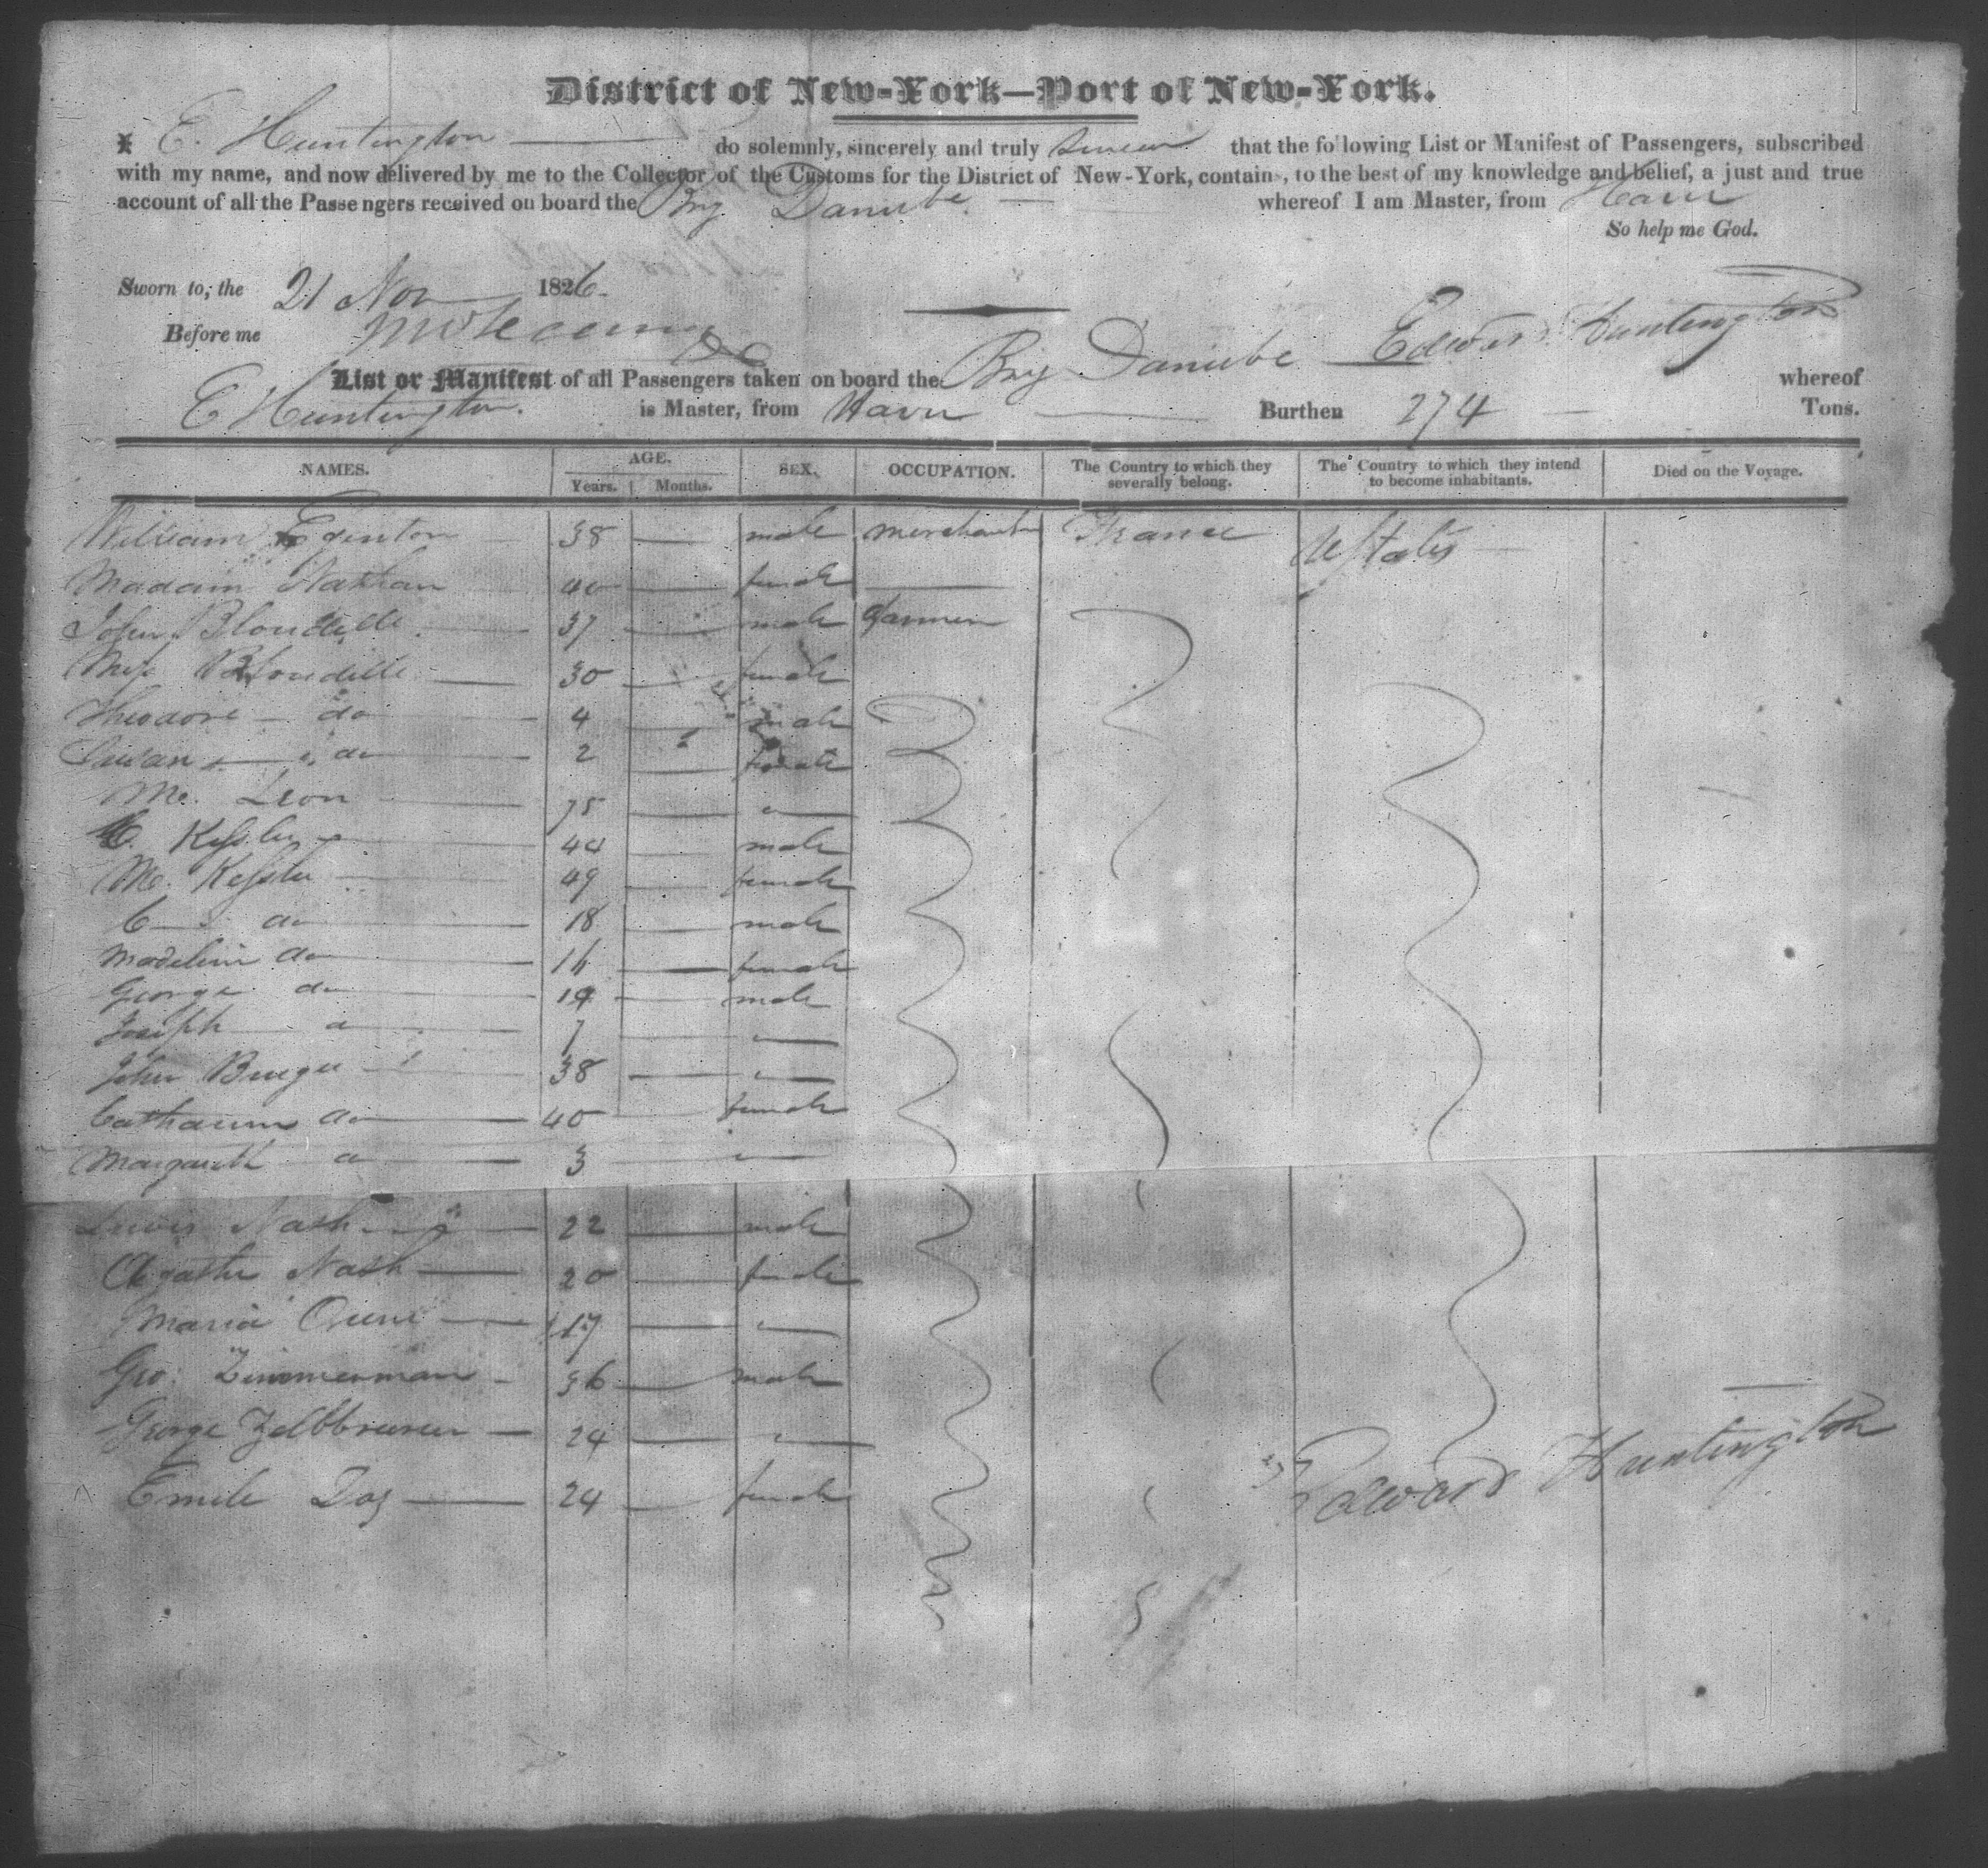 District of New-York—Port of New-York.
I E. Huntington do solemnly, sincerely and truly swear that the following List or Manifest of Passengers, subscribed
with my name, and now delivered by me to the Collector of the Customs for the District of New-York, contains, to the best of my knowledge and belief, a just and true
account of all the Passengers received on board the Brig Danube whereof I am Master, from Havre
So help me God.
Sworn to, the 21 Nov 1826
Before me
Edward Huntington
List or Manifest of all Passengers taken on board the Brig Danube whereof
E Huntington. is Master, from Havre Burthen 274 Tons.
NAMES. AGE. SEX. OCCUPATION. The Country to which they severally belong. The Country to which they intend to become inhabitants. Died on the Voyage.
Years. Months.
William Edenton 38 — male merchant France U States
Madam Nathan 40 — female —
John Blondelle 37 — male farmer
Miss Blondelle 30 — female
Theodore do 4 — male
do 2 — female
Me. Leon 75 — "
Kessler 44 — male
Me. Kessler 49 — female
C do 18 — male
Madelin do 16 — female
George do 14 — male
Joseph do 7 — "
John Burger 38 — "
Catharine do 40 — female
Margareth do 3 — "
Lewis Nash 22 — male
Agathe Nash 20 — female
Maria 17 — "
Geo: Zimmerman 36 — male
George 24 — "
Emile 24 — female
Edward Huntington